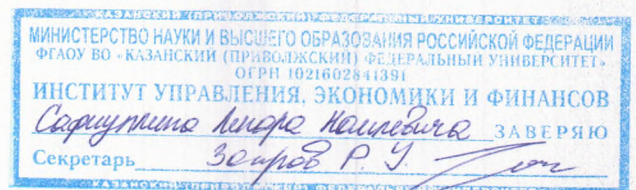 КАЗАНСКИЙ (ПРИВОЛЖСКИЙ) ФЕДЕРАЛЬНЫЙ УНИВЕРСИТЕТ
МИНИСТЕРСТВО НАУКИ И ВЫСШЕГО ОБРАЗОВАНИЯ РОССИЙСКОЙ ФЕДЕРАЦИИ
ФГАОУ ВО «КАЗАНСКИЙ (ПРИВОЛЖСКИЙ) ФЕДЕРАЛЬНЫЙ УНИВЕРСИТЕТ»
ОГРН 1021602841391
ИНСТИТУТ УПРАВЛЕНИЯ, ЭКОНОМИКИ И ФИНАНСОВ
Ленара Наилевича ЗАВЕРЯЮ
Секретарь Заиров Р. У.
КАЗАНСКИЙ (ПРИВОЛЖСКИЙ) ФЕДЕРАЛЬНЫЙ УНИВЕРСИТЕТ